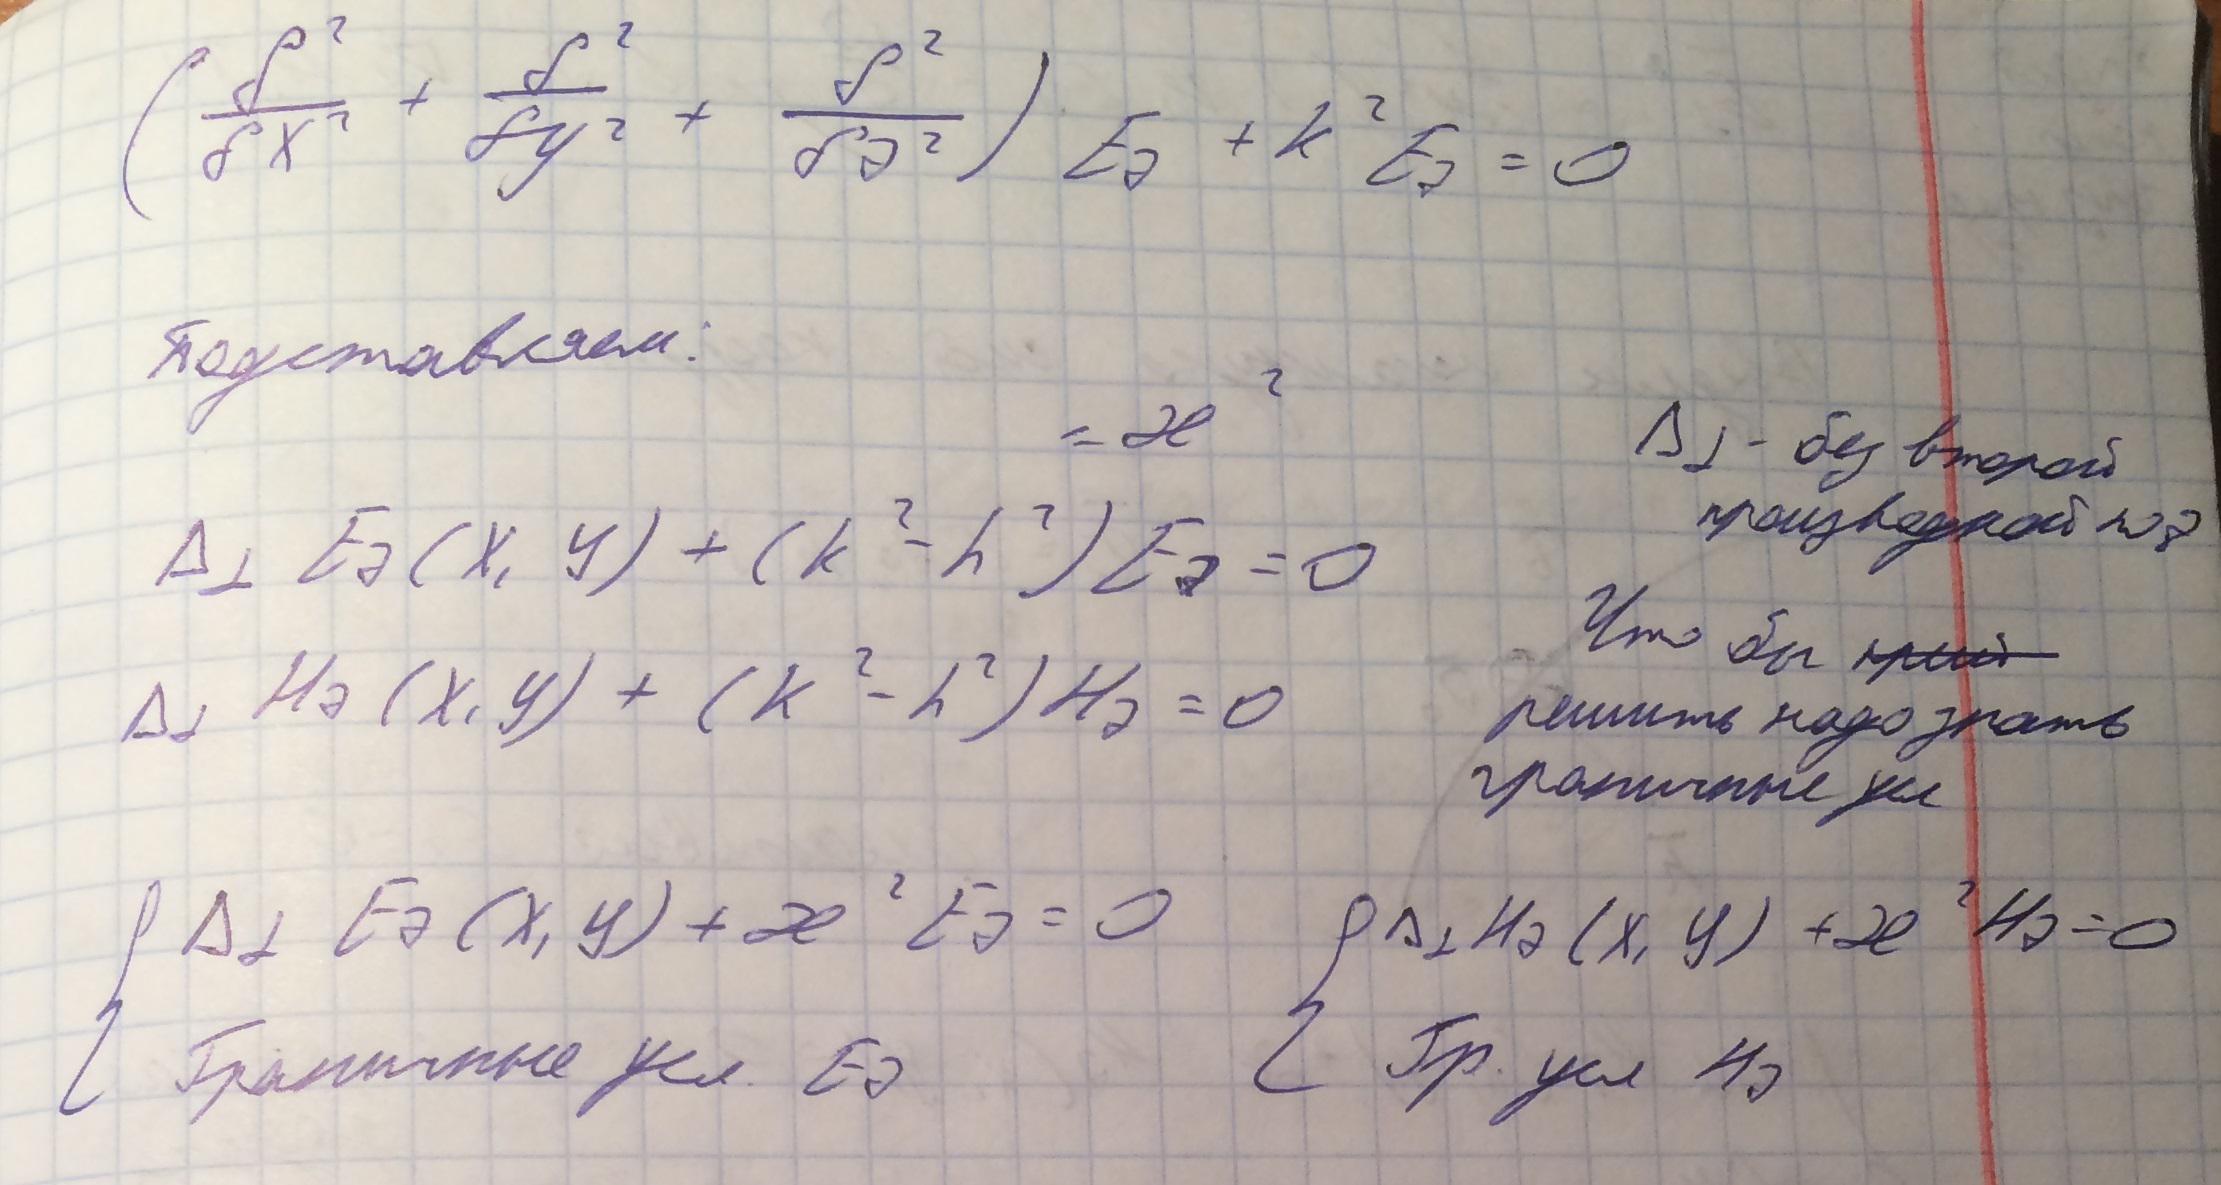 (δ²/δx² + δ²/δy² + δ²/δz²) Ez + k² Ez = 0
Подставляем:
= æ²
Δ⊥ Ez (x, y) + (k² - h²) Ez = 0
Δ⊥ Hz (x, y) + (k² - h²) Hz = 0
Δ⊥ - без второй
производной по z
Что бы
решить надо знать
граничные усл
{ Δ⊥ Ez (x, y) + æ² Ez = 0
Граничные усл. Ez
{ Δ⊥ Hz (x, y) + æ² Hz = 0
Гр. усл Hz